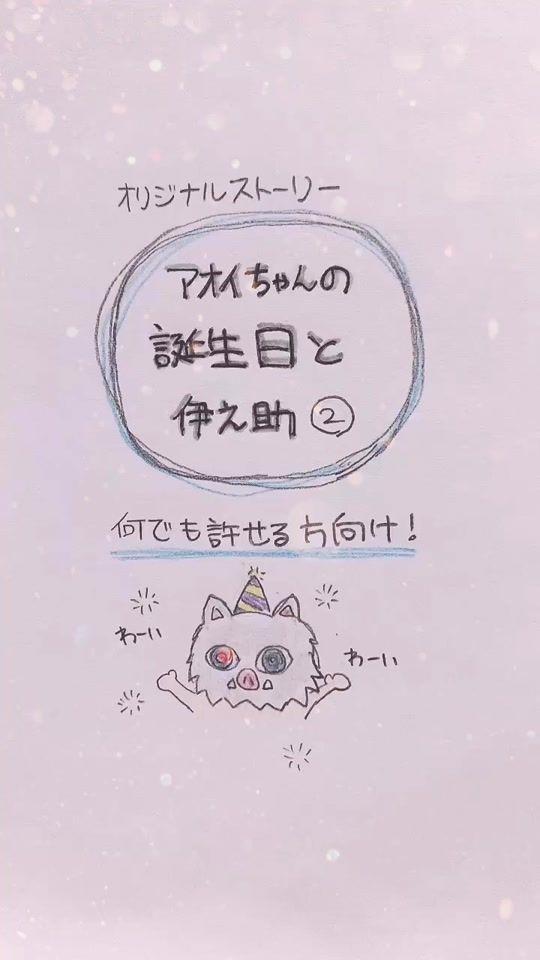 オリジナルストーリー
アオイちゃんの
誕生日と
伊之助②
何でも許せる方向け!
わーい
わーい